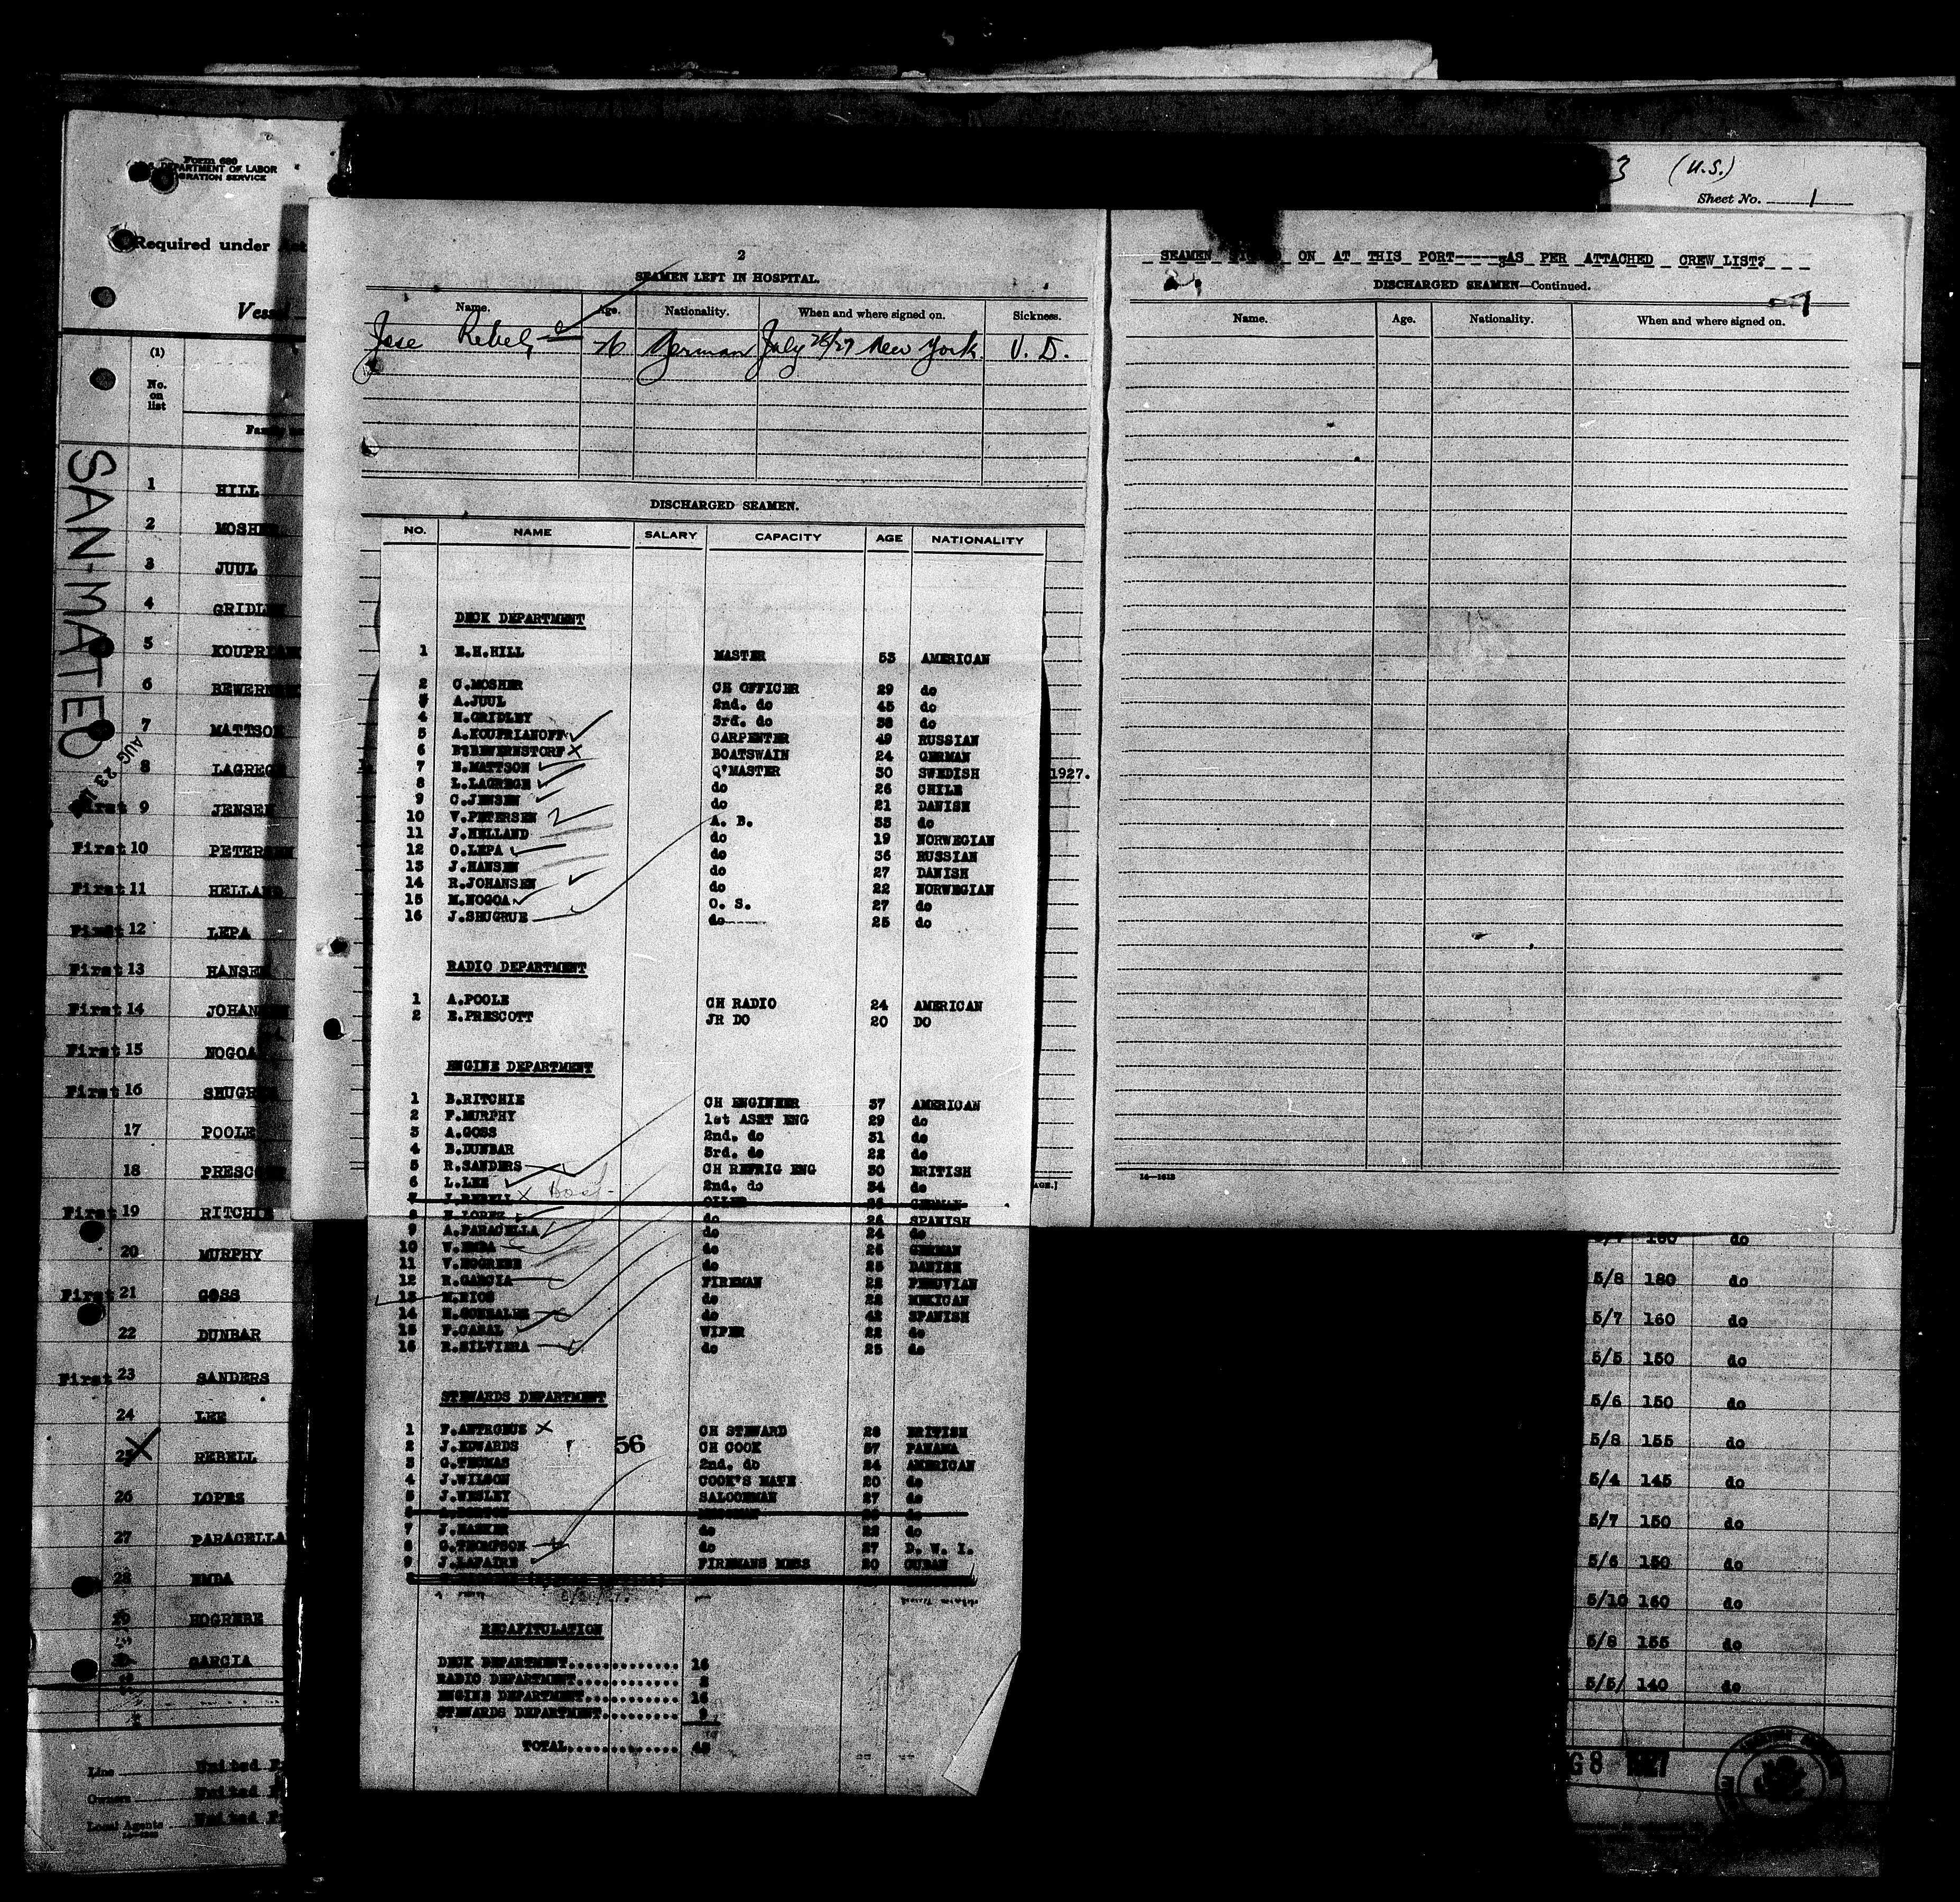 Form 680
DEPARTMENT OF LABOR
Required under
(1)
No. on list
SAN-MATEO
AUG 23
1 HILL
2 MOSHER
3 JUUL
4 GRIDLEY
5 KOUPRIAN
6 BEWERN
7 MATTSON
8 LAGREGE
First 9 JENSEN
First 10 PETERSEN
First 11 HELLAND
First 12 LEPA
First 13 HANSEN
First 14 JOHAN
First 15 NOGOA
First 16 SHUGR
17 POOLE
18 PRESCO
First 19 RITCHIE
20 MURPHY
First 21 GOSS
22 DUNBAR
First 23 SANDERS
24 LEE
25 REBELL
26 LOPEZ
27 PARACELLA
28 EMDA
29 HOGREBE
GARCIA
Line United
Owners United
Local Agents United
2
SEAMEN LEFT IN HOSPITAL.
Name. Age. Nationality. When and where signed on. Sickness.
Jose Rebel 26 German July 28/27 New York. V. D.
DISCHARGED SEAMEN.
NO. NAME SALARY CAPACITY AGE NATIONALITY
DECK DEPARTMENT
1 E.H.HILL MASTER 53 AMERICAN
2 C.MOSHER CH OFFICER 29 do
3 A.JUUL 2nd. do 45 do
4 H.GRIDLEY 3rd. do 38 do
5 A.KOUPRIANOFF CARPENTER 49 RUSSIAN
6 BEWERNSTORF BOATSWAIN 24 GERMAN
7 E.MATTSON Q'MASTER 30 SWEDISH
8 L.LAGREGE do 26 CHILE
9 C.JENSEN do 21 DANISH
10 V.PETERSEN A. B. 33 do
11 J.HELLAND do 19 NORWEGIAN
12 O.LEPA do 36 RUSSIAN
13 J.HANSEN do 27 DANISH
14 R.JOHANSEN do 22 NORWEGIAN
15 M.NOGOA O. S. 27 do
16 J.SHUGRUE do 25 do
1927.
RADIO DEPARTMENT
1 A.POOLE CH RADIO 24 AMERICAN
2 E.PRESCOTT JR DO 20 DO
ENGINE DEPARTMENT
1 B.RITCHIE CH ENGINEER 37 AMERICAN
2 F.MURPHY 1st ASST ENG 29 do
3 A.GOSS 2nd. do 31 do
4 B.DUNBAR 3rd. do 22 do
5 R.SANDERS CH REFRIG ENG 30 BRITISH
6 L.LEE 2nd. do 34 do
7 J.REBELL Hosp. OILER 26 GERMAN
8 LOPEZ do 26 SPANISH
9 A.PARACELLA do 24 do
10 V.EMDA do 26 GERMAN
11 V.HOGREBE do 25 DANISH
12 R.GARCIA FIREMAN 22 PERUVIAN
13 M.RIOS do 28 MEXICAN
14 GONZALES do 42 SPANISH
15 F.CABAL WIPER 22 do
16 R.SILVIERA do 25 do
STEWARDS DEPARTMENT
1 F.ANTROBUS CH STEWARD 28 BRITISH
2 J.EDWARDS 56 CH COOK 57 PANAMA
3 G.THOMAS 2nd. do 24 AMERICAN
4 J.WILSON COOK'S MATE 20 do
5 J.WESLEY SALOONMAN 27 do
7 do 22 do
8 G.THOMPSON do 27 B. W. I.
9 J.LAFAIRE FIREMANS MESS 30 CUBAN
RECAPITULATION
DECK DEPARTMENT............ 16
RADIO DEPARTMENT............ 2
ENGINE DEPARTMENT........... 16
STEWARDS DEPARTMENT......... 9
TOTAL............
3 (U.S.)
Sheet No. 1
SEAMEN SIGNED ON AT THIS PORT-----AS PER ATTACHED CREW LIST?
DISCHARGED SEAMEN—Continued.
Name. Age. Nationality. When and where signed on.
160 do
5/8 180 do
5/7 160 do
5/5 150 do
5/6 150 do
5/8 155 do
5/4 145 do
5/7 150 do
5/6 150 do
5/10 160 do
5/8 155 do
5/5/ 140 do